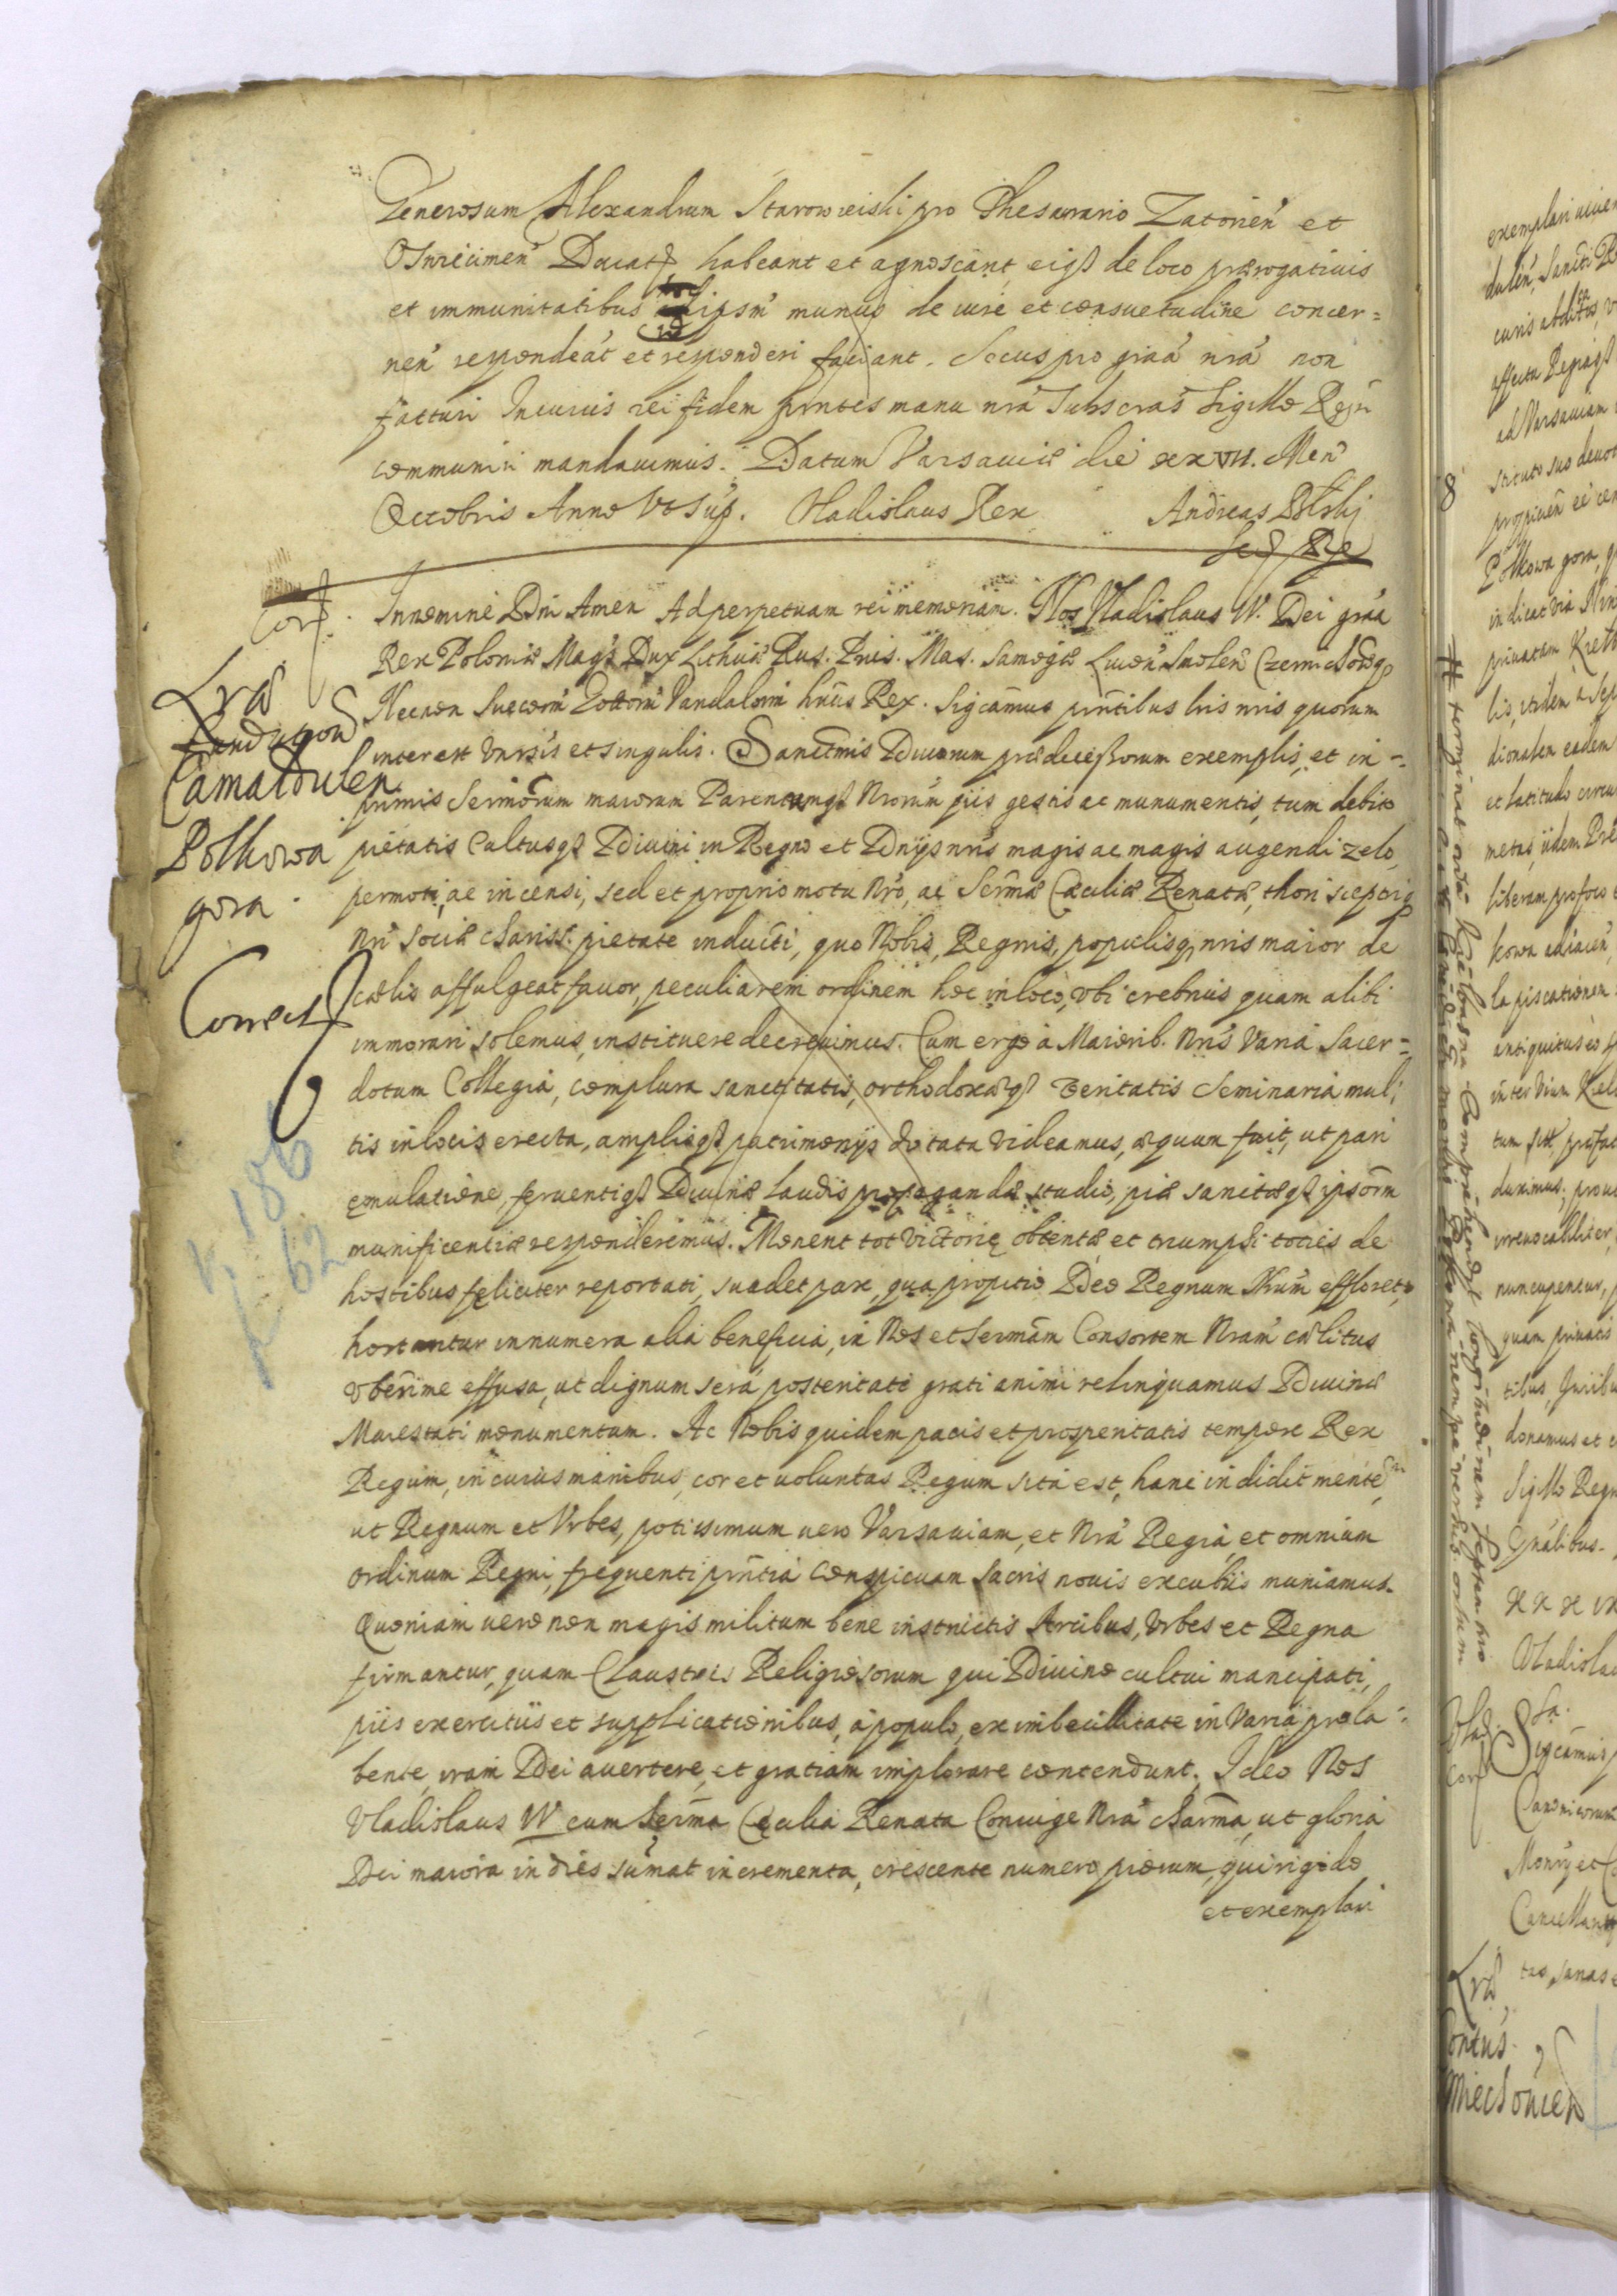 Generosum Alexandrum Starowieiski pro Thesaurario Zatorień et
Oswiecimeń Ducatꝫ habeant et agnoscant, eiqꝫ de loco prærogatiuis
et immunitatibus ipsm̃ munus de iure et consuetudine concer=
neñ respondeāt et responderi faciant. Secus pro graã nrã non
facturi In cuius rei fidem pñtes manu nrã Subscras̃ Sigillo Regni
communiri mandauimus. Datum Varsauiæ die xxvii. Meñ
Octobris Anno Vt Sup. Vladislaus Rex Andreas
Corꝫ. In nomine Dñi Amen Ad perpetuam rei memoriam. Nos Vladislaus IV. Dei graã
Rex Poloniæ Mags Dux Lithuæ Rus. Prus. Mas. Samogæ Liuoñ Smoleñ Czernichoqꝫ
Necnon Suecorm̃ Gottorm̃ Vandalorm̃ hrius Rex. Sigcamus pñtibus lris nris quorum
interest Vnrsis et singulis. Sanctmis Diuorum prædecessorum exemplis, et in=
primis Sermorum maiorum Parentumqꝫ Nrorum̃ piis gestis ac munumentis, tum debito
pietatis Cultusqꝫ Diuini in Regno et Dnijs nris magis ac magis augendi zelo,
permoti, ac incensi, sed et proprio motu Nro, ac Sermæ Cæciliæ Renatæ, thori sceptriqꝫ
Nri Sociæ chariss. pietate inducti, quo Nobis, Regnis, populisqꝫ nris maior de
cælis affulgeat fauor, peculiarem ordinem hoc in loco, vbi crebrius quam alibi
immorari solemus, instituere decreuimus. Cum ergo à Maiorib. Nris Varia Sacer=
dotum Collegia, complura sanctitatis, orthodoxæqꝫ veritatis Seminaria mul:
tis in locis erecta, amplisqꝫ patrimonijs dotata videamus, æquum fuit, ut pari
ęmulatione, feruentiqꝫ Diuinæ laudis propagandæ studio, piæ sanctæqꝫ ipsorm̃
munificentiæ responderemus. Monent tot victorię obtentæ et triumphi toties de
hostibus feliciter reportati, suadet pax, qua propitio Deo Regnum Nrum̃ effloret,
hortantur innumera alia beneficia, in Nos et Sermam̃ Consortem Nram̃ cælitus
vberrime effusa, ut dignum serā posteritati grati animi relinquamus Diuinæ
Maiestati monumentum. Ac Nobis quidem pacis et prosperitatis tempore Rex
Regum, in cuius manibus, cor et voluntas Regum sita est, hanc indidit mentē,
ut Regnum et Vrbes, potissimum uero Varsauiam, et Nrā Regiā, et omnium
ordinum Regni, frequenti pñtiā Conspicuam sacris nouis excubiis muniamus.
Quoniam uero non magis militum bene instructis Arcibus, vrbes et Regna
firmantur, quam Claustris Religiosorum qui Diuino cultui mancipati,
piis exercitiis et supplicationibus, à populo, ex imbecillitate in Varia prola=
bente, iram Dei auertere, et gratiam implorare contendunt. Ideo Nos
Vladislaus IV cum Serma Cęcilia Renata Coniuge Nrā charma, ut gloria
Dei maiora in dies sumat incrementa, crescente numero piorum, qui rigido
et exemplari
Lræ
Fundaõn
Camaldulen
Polkowa
gora.
Correctꝫ
186
62
exemplari
duleñ, Sancti
curis
affectu
ad Varsauiam
Polkowa gora,
indicat via
priuatam
dionalem eadem
et latitudo
metas, iidem
liberam
kowa
la piscationem
antiquitus
inter viam
duximus,
irreuocabiliter,
nuncupentur,
quam priuatis
tibus,
donamus et
Sigillo Regn
Vladislau
Sigcamus
Canonicorum
Cancellar
Lræ
Miechouień